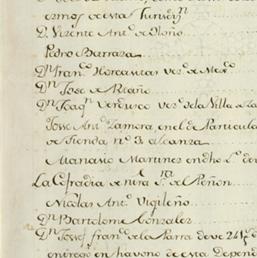 ermos de esta Fundiçⁿ
D. Vizente Antᵒ. de Otoño
Pedro Barraza
Dⁿ franᶜᵒ. Horcasitas verᵒ de Mexᶜᵒ
Dⁿ Jose de Riaño
Dⁿ Joaqⁿ Verduzco verᵒ de la Villa de La
Jose Antᵒ Zamora, en el de Particula
de Tienda nᵒ 3 alcanza
Atanasio Martines en dho Lᵒ de
La Cofradia de ntra Sʳᵃ. del Peñon
Nicolas Antᵒ Vigileño
Dⁿ Bartolome Gonzalez
Dⁿ Josef franᶜᵒ de la Parra deve 241 pˢ
entregó en havono de esta Depend